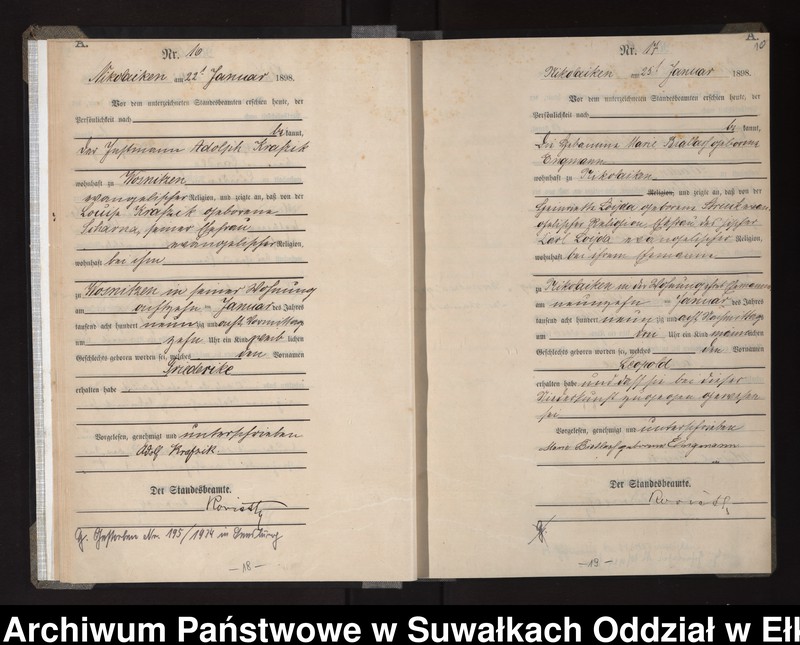 A.
Nr. 16
Nikolaiken am 22t Januar 1898.
Vor dem unterzeichneten Standesbeamten erschien heute, der
Persönlichkeit nach
be kannt,
der Instmann Adolph
wohnhaft zu
evangelischer Religion, und zeigte an, daß von der
Louise geborene
seiner Ehefrau
evangelischer Religion,
wohnhaft bei ihm
zu in seiner Wohnung
am achtzehn ten Januar des Jahres
tausend acht hundert neun zig und acht Vormittag
um zehn Uhr ein Kind weib lichen
Geschlechts geboren worden sei, welches den Vornamen
Friederike
erhalten habe
Vorgelesen, genehmigt und unterschrieben
Adolf
Der Standesbeamte.
Gestorben Nr. 195/1934 in Sensburg
—18—
A.
10
Nr. 17
Nikolaiken am 25t Januar 1898.
Vor dem unterzeichneten Standesbeamten erschien heute, der
Persönlichkeit nach
be kannt,
Die Hebamme Marie Biallas geborene
Engmann
wohnhaft zu Nikolaiken
Religion, und zeigte an, daß von der
Henriette geborene evan
gelischer Religion Ehefrau des
Carl evangelischer Religion,
wohnhaft bei ihrem Ehemanne
zu Nikolaiken in der Wohnung ihres Ehemanns
am neunzehn ten Januar des Jahres
tausend acht hundert neun zig und acht Nachmittag
um drei Uhr ein Kind männ lichen
Geschlechts geboren worden sei, welches den Vornamen
Leopold
erhalten habe und daß sie bei dieser
Niederkunft zugegen gewesen
sei
Vorgelesen, genehmigt und unterschrieben
Marie geborene Engmann
Der Standesbeamte.
—19—
Archiwum Państwowe w Suwałkach Oddział w Ełk